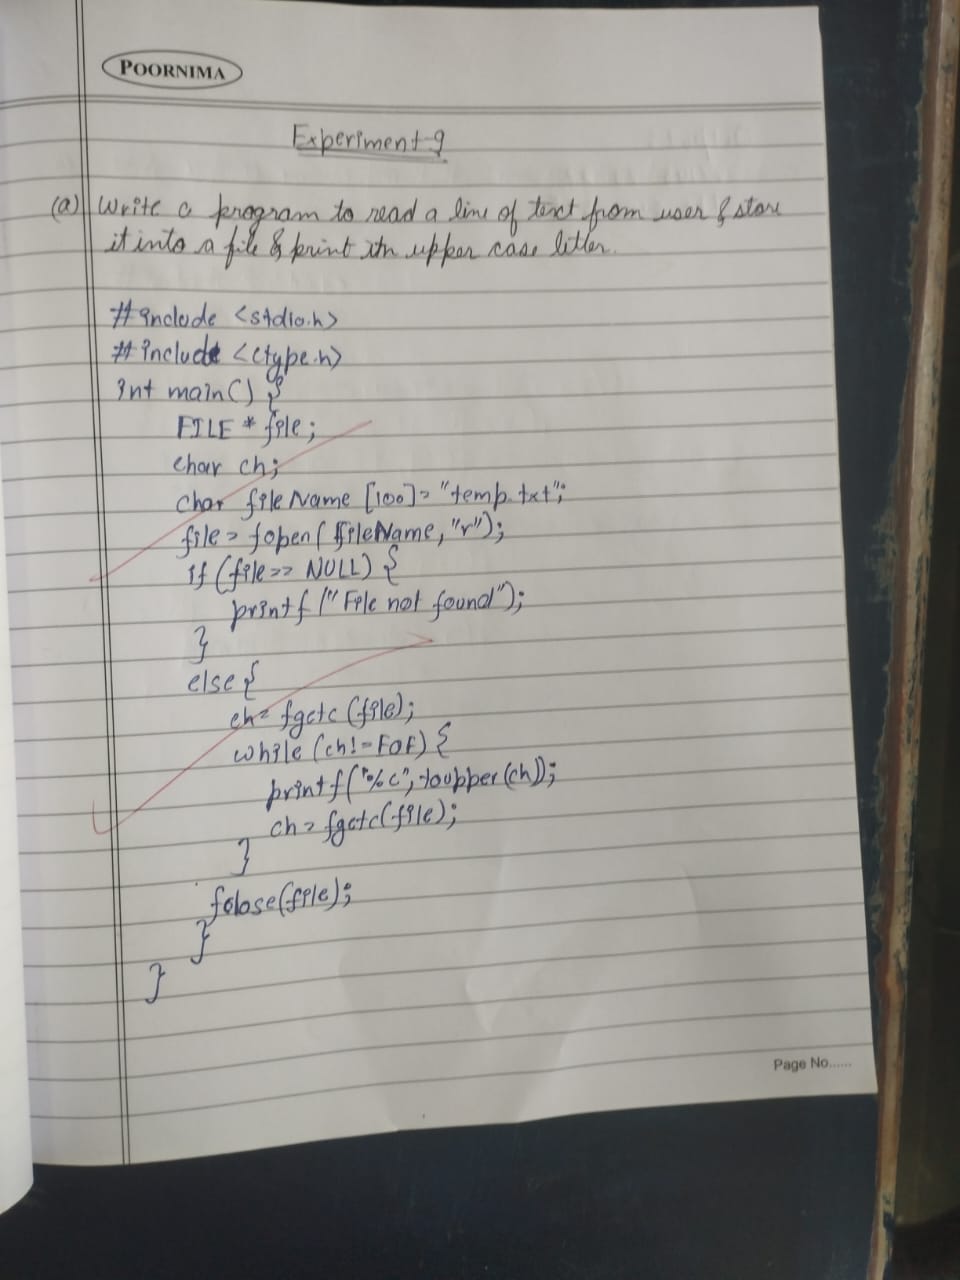 POORNIMA
Experiment-9
(a) Write a program to read a line of text from user & store
it into a file & print in upper case letter.
#include <stdio.h>
#include <ctype.h>
int main() {
FILE * file;
char ch;
char fileName [100]= "temp.txt";
file = fopen(fileName, "r");
if (file == NULL) {
printf ("File not found");
}
else {
ch= fgetc (file);
while (ch!=EOF) {
printf("%c", toupper(ch));
ch = fgetc(file);
}
fclose(file);
}
}
Page No......